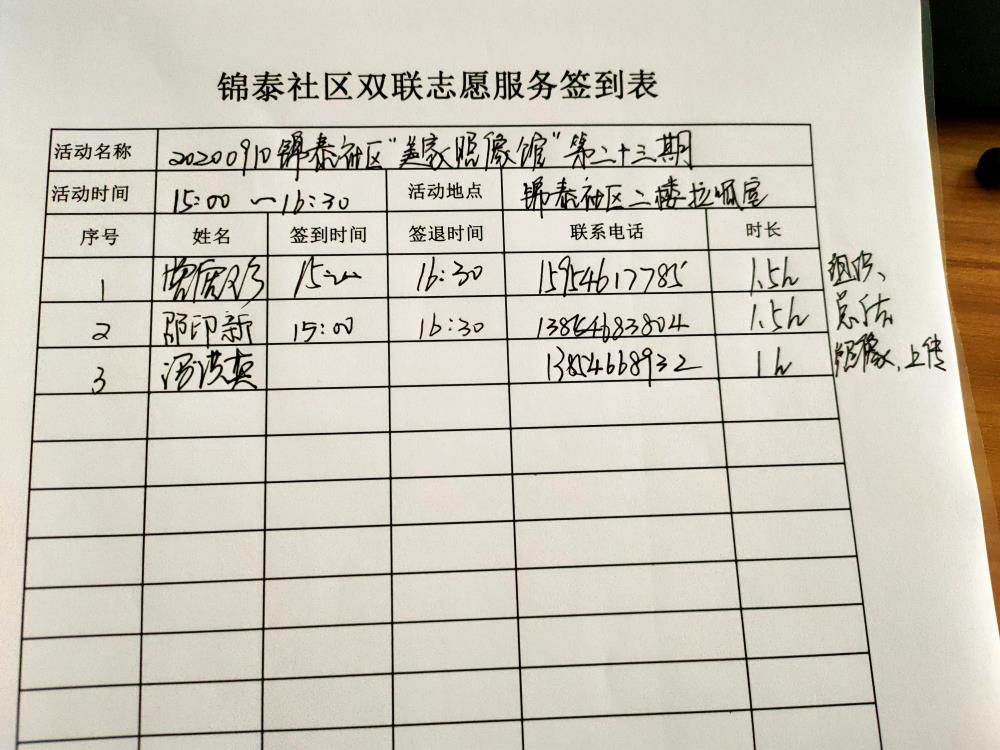 锦泰社区双联志愿服务签到表
活动名称 20200910锦泰社区"美家照像馆"第二十三期
活动时间 15:00—16:30 活动地点 锦泰社区二楼拉呱室
序号 姓名 签到时间 签退时间 联系电话 时长
1 15:00 16:30 15954617785 1.5h 组织、
2 邵印新 15:00 16:30 13854683804 1.5h 总结
3 13854668932 1h 照像、上传